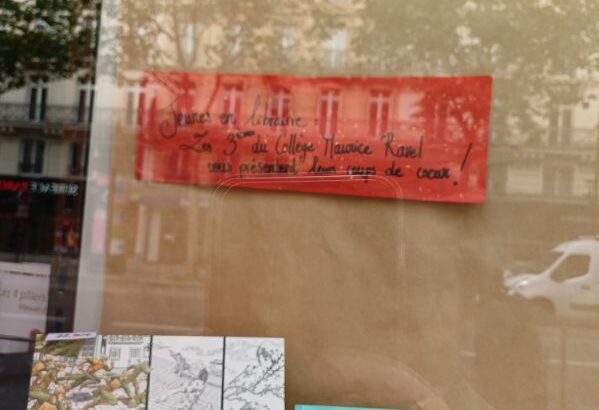 Jeunes en librairie :
Les 3ème du Collège Maurice Ravel
vous présentent leurs coups de coeur !
Les 4 piliers